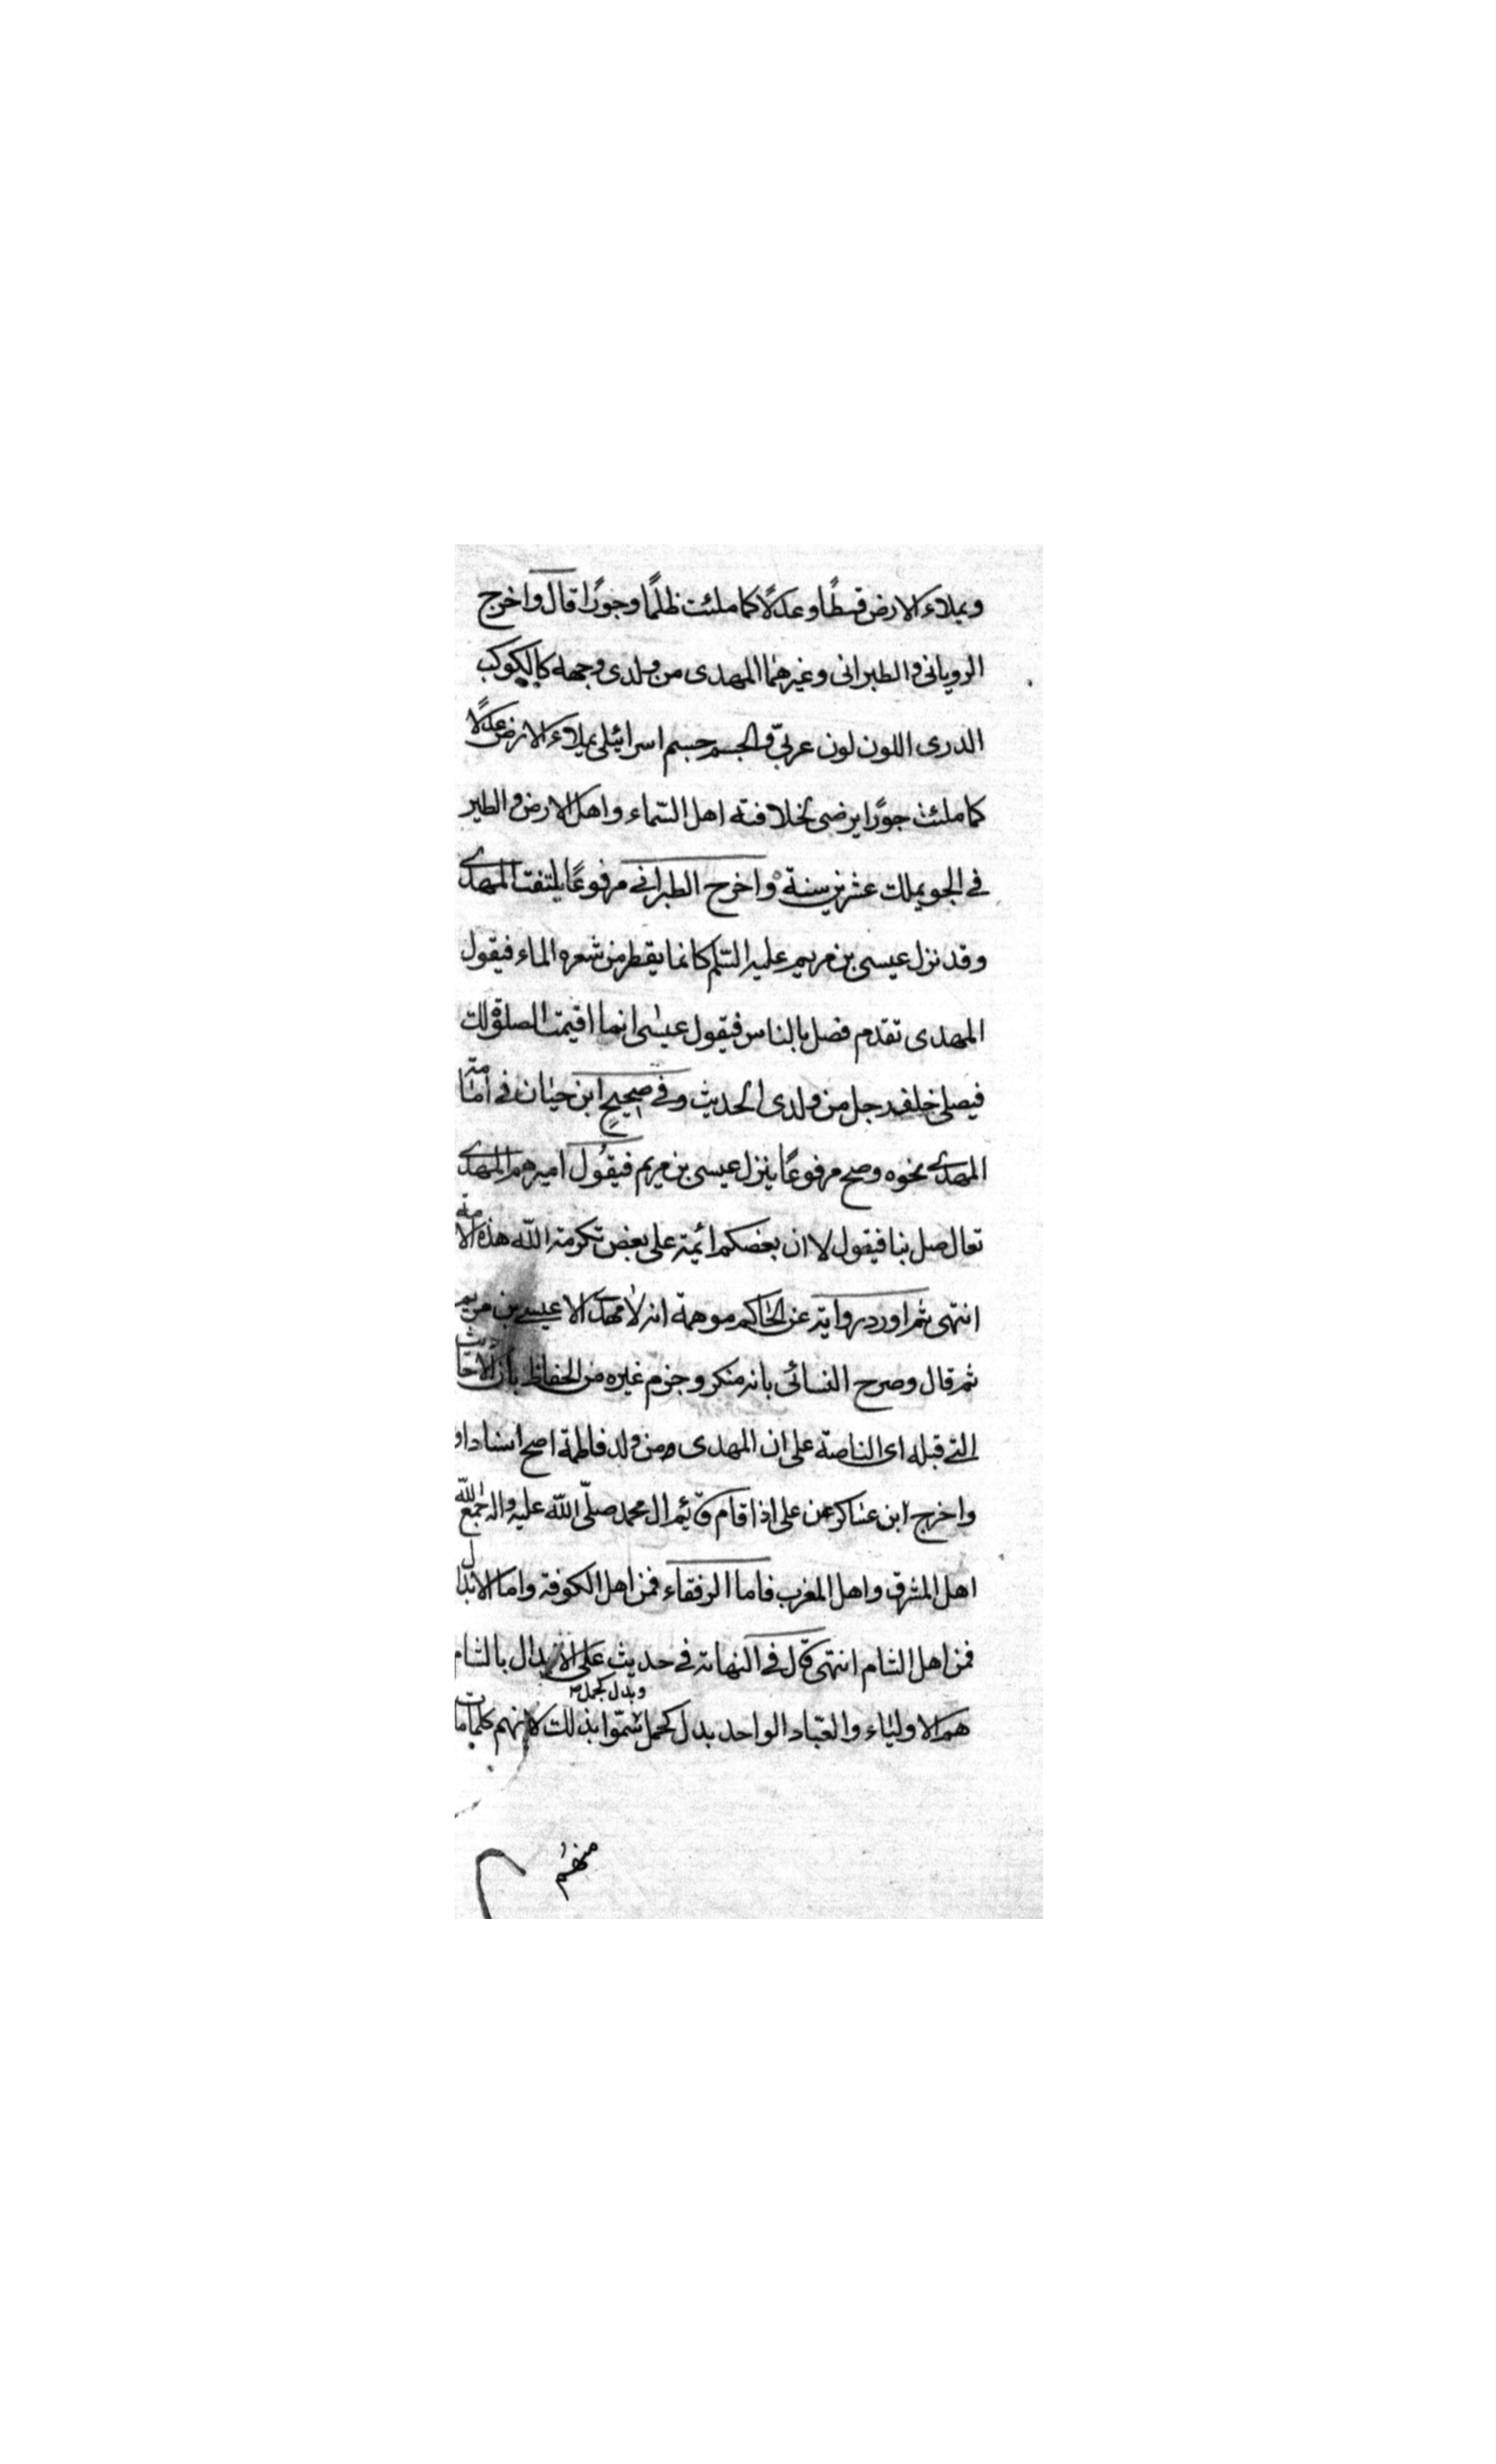 ويملاء الارض قسطًا وعدلًا كما ملئت ظلمًا وجورًا قال واخرج
الرويانى والطبرانى وغيرهما المهدى من ولدى وجهه كالكوكب
الدرى اللون لون عربىّ والجسم جسم اسرائيلى يملاء الارض عدلًا
كما ملئت جورًا يرضى لخلافته اهل السّماء واهل الارض والطير
فى الجو يملك عشرين سنة واخرج الطبرانى مرفوعًا يلتفت المهدى
وقد نزل عيسى بن مريم عليه السّلم كانما يقطر من شعره الماء فيقول
المهدى تقدم فصل بالناس فيقول عيسى انما اقيمت الصلوة لك
فيصلى خلف رجل من ولدى الحديث وفى صحيح ابن حبان فى امامته
المهدى نحوه وصح مرفوعًا ينزل عيسى بن مريم فيقول اميرهم المهدى
تعال صل بنا فيقول لا ان بعضكم ائمة على بعض تكرمة الله هذه الامة
انتهى ثم اورد رواية عن الحاكم موهمة انه لا مهدى الا عيسى بن مريم
ثم قال وصرح النسائى بانه منكر وجزم غيره من الحفاظ بان الاحاديث
التى قبله اى الناصة على ان المهدى من ولد فاطمة اصح اسنادا
واخرج ابن عساكر عن على اذا قام قائم ال محمد صلّى الله عليه واله جمع الله
اهل المشرق واهل المغرب فاما الرفقاء فمن اهل الكوفة واما الابدال
فمن اهل الشام انتهى قال فى النهاية فى حديث على الابدال بالشام
وبدل كجمل
هم الاولياء والعبّاد الواحد بدل كحمل سمّوا بذلك لانهم كلما مات
منهم